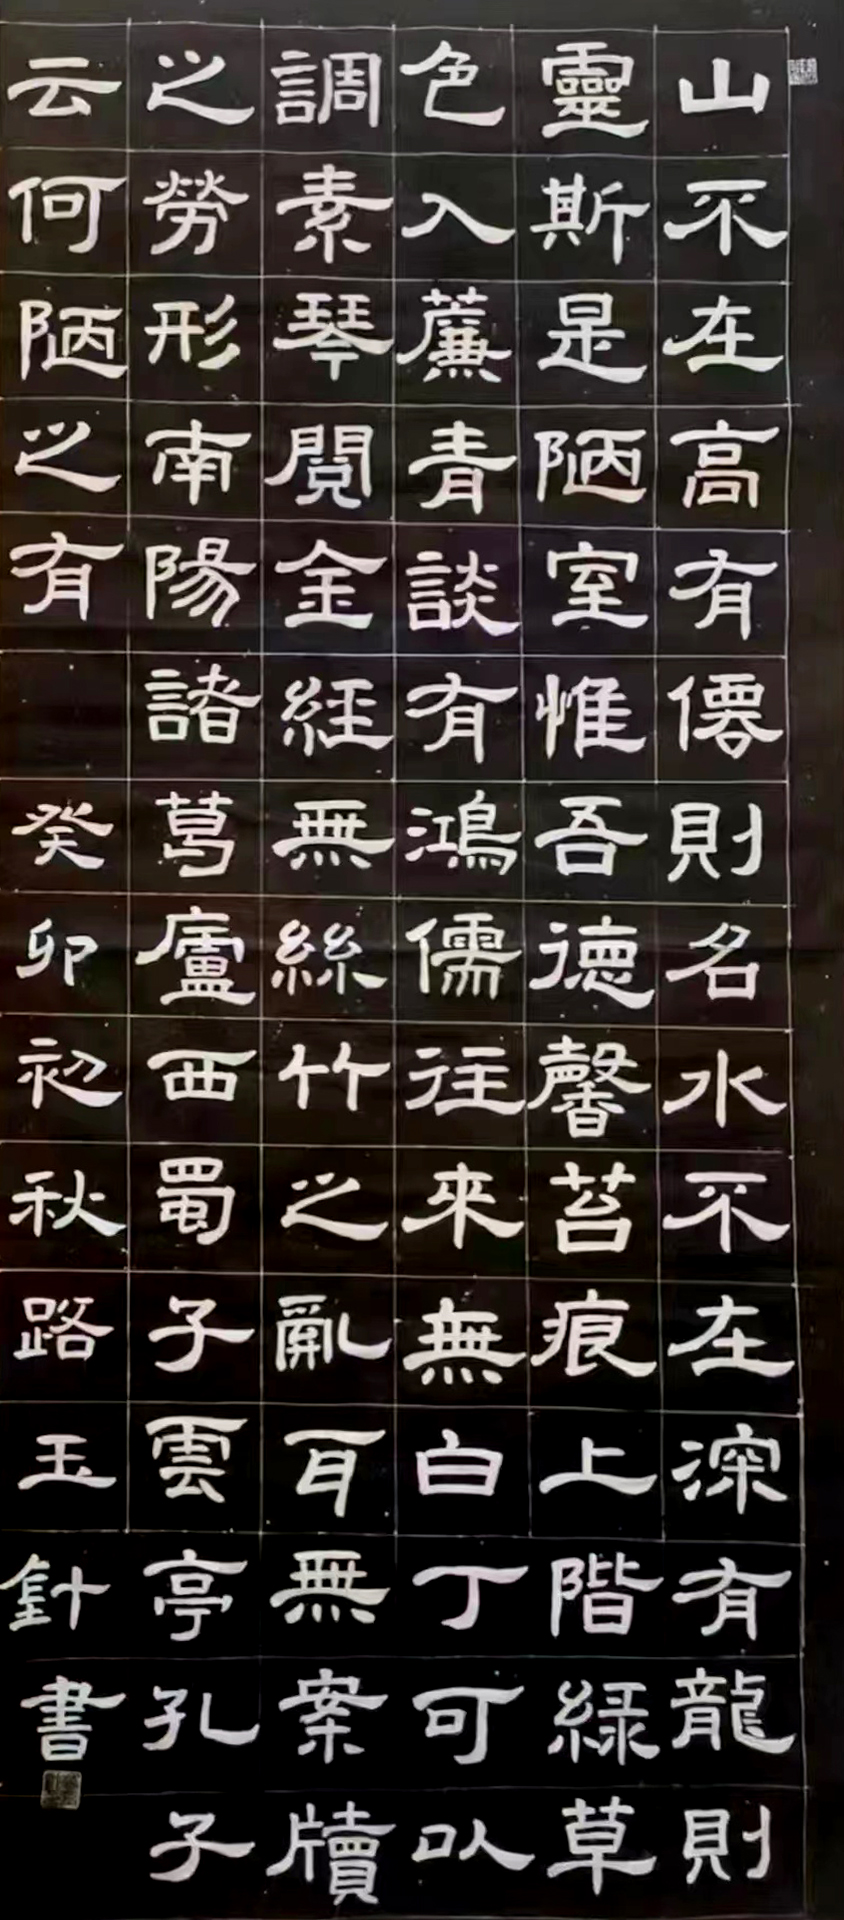 山不在高有僊則名水不在深有龍則
靈斯是陋室惟吾德馨苔痕上階緑草
色入薕青談有鴻儒往來無白丁可以
調素琴閱金経無絲竹之亂耳無案牘
之勞形南陽諸葛廬西蜀子雲亭孔子
云何陋之有
癸卯初秋路玉針書